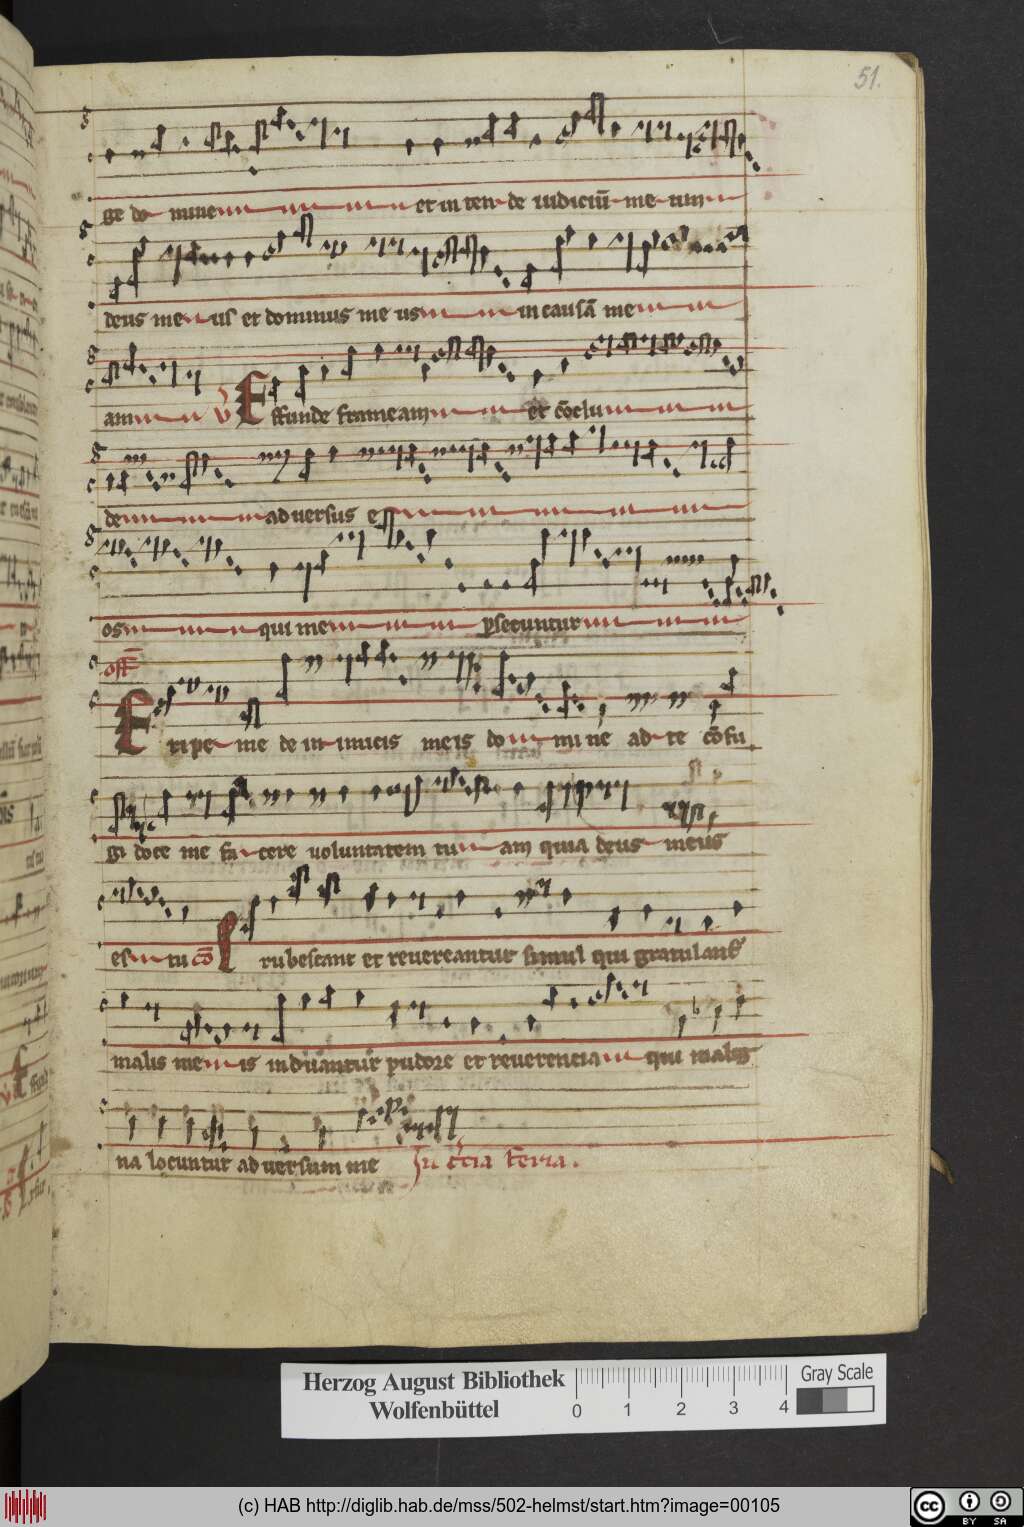 51.
ge do mine et in ten de iudiciū me um
deus me us et dominus me us in causā me
am v̄ Effunde frameam et cōclu
de ad uersus e
os qui me psecuntur
off̄
Eripe me de in imicis meis do mi ne ad te cōfu
gi doce me fa cere uoluntatem tu am quia deus meus
es tu cō Erubescant et reuereantur simul qui gratulant
malis me is induantur pudore et reuerencia qui malig
na locuntur ad uersum me
Herzog August Bibliothek
Wolfenbüttel
0 1 2 3 4
Gray Scale
(c) HAB http://diglib.hab.de/mss/502-helmst/start.htm?image=00105
cc BY SA